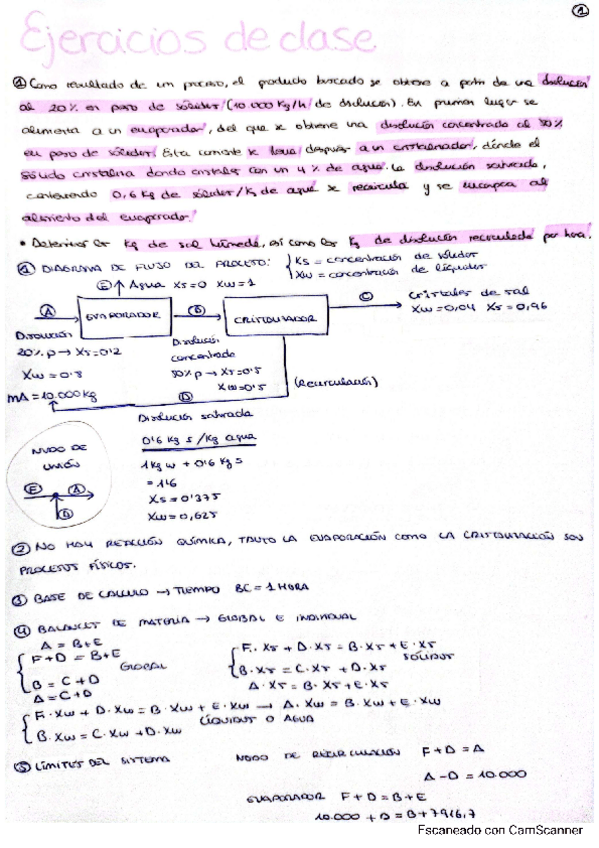 1
Ejercicios de clase
① Como resultado de un proceso, el producto buscado se obtiene a partir de una disolución
al 20% en peso de sólidos (10 000 kg/h de disolución). En primer lugar se
alimenta a un evaporador, del que se obtiene una disolución concentrada al 50%
en peso de sólidos. Esta corriente se lleva después a un cristalizador, donde el
sólido cristaliza dando cristales con un 4% de agua. La disolución saturada,
conteniendo 0,6 kg de sólidos/kg de agua se recircula y se incorpora al
alimento del evaporador.
• Determinar los kg de sal húmeda, así como los kg de disolución recirculada por hora.
① DIAGRAMA DE FLUJO DEL PROCESO: { Xs = concentración de sólidos
Xw = concentración de líquidos
E ↑ Agua Xs=0 Xw=1
A EVAPORADOR B CRISTALIZADOR C Cristales de sal
Xw=0,04 Xs=0,96
Disolución
20% p → Xs=0'2
Xw=0'8
mA=10.000kg
Disolución
concentrada
50% p → Xs=0'5
Xw=0'5
D (Recirculación)
Disolución saturada
0'6 kg s/kg agua
1kg w + 0'6 kg s
= 1'6
Xs=0'375
Xw=0,625
NUDO DE
UNIÓN
F A
D
② NO HAY REACCIÓN QUÍMICA, TANTO LA EVAPORACIÓN COMO LA CRISTALIZACIÓN SON
PROCESOS FÍSICOS.
③ BASE DE CALCULO → TIEMPO BC = 1 HORA
④ BALANCES DE MATERIA → GLOBAL E INDIVIDUAL
A = B+E
{ F+D = B+E GLOBAL
B = C+D
A = C+D
{ F·Xs + D·Xs = B·Xs + E·Xs SÓLIDOS
B·Xs = C·Xs + D·Xs
A·Xs = B·Xs + E·Xs
{ F·Xw + D·Xw = B·Xw + E·Xw → A·Xw = B·Xw + E·Xw
LÍQUIDOS O AGUA
B·Xw = C·Xw + D·Xw
⑤ LÍMITES DEL SISTEMA NODO DE RECIRCULACIÓN F+D = A
A-D = 10.000
EVAPORADOR F+D = B+E
10.000 + D = B+7916,7
Escaneado con CamScanner